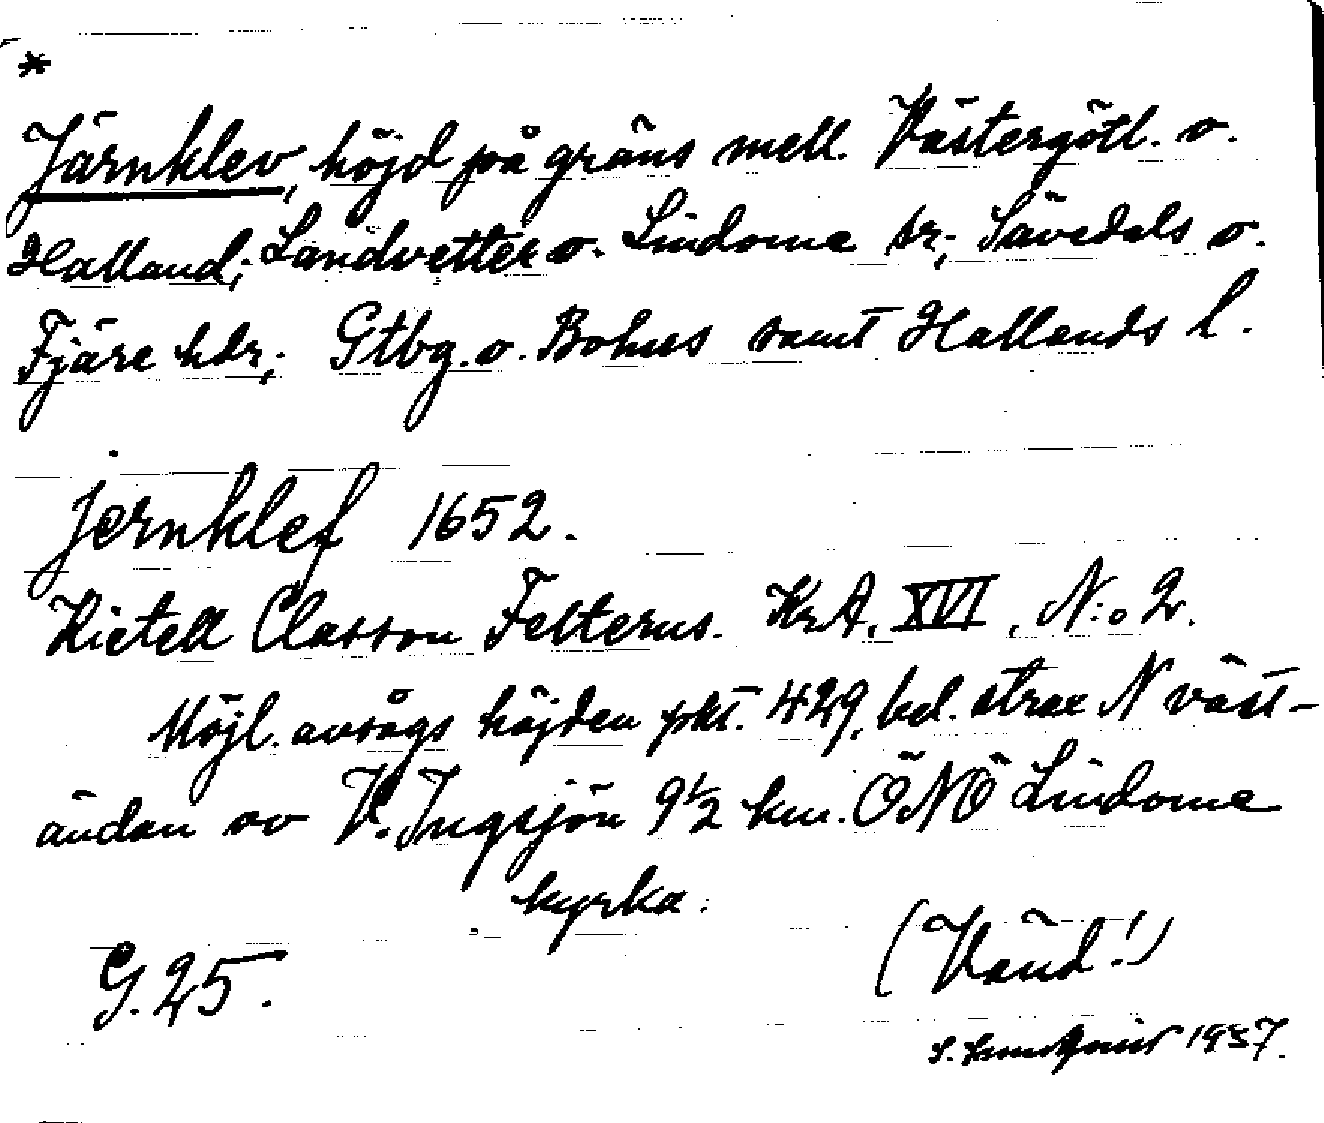 *
Järnklev, höjd på gräns mell. Västergötl. o.
Halland; Landvetter o. Lindome sr; Sävedals o.
Fjäre hdr; Gtbg. o. Bohus samt Hallands l.
Jernklef 1652.
Kietell Classon Felterus. KrA. XVI, N:o 2.
Möjl. avsågs höjden pkt. 429, bel. strax N väst-
ändan av V. Ingsjön 9½ km. ÖNÖ Lindome
kyrka.
G. 25.
(Vänd!)
S. 1937.